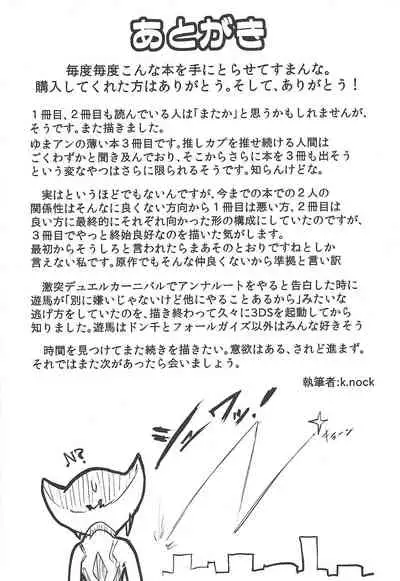 あとがき
毎度毎度こんな本を手にとらせてすまんな。
購入してくれた方はありがとう。そして、ありがとう!
1冊目、2冊目も読んでいる人は「またか」と思うかもしれませんが、
そうです。また描きました。
ゆまアンの薄い本3冊目です。推しカプを推せ続ける人間は
ごくわずかと聞き及んでおり、そこからさらに本を3冊も出そう
という変なやつはさらに限られるそうです。知らんけどな。
実はというほどでもないんですが、今までの本での2人の
関係性はそんなに良くない方向から1冊目は悪い方、2冊目は
良い方に最終的にそれぞれ向かった形の構成にしていたのですが、
3冊目でやっと終始良好なのを描いた気がします。
最初からそうしろと言われたらまあそのとおりですねとしか
言えない私です。原作でもそんな仲良くないから準拠と言い訳
激突デュエルカーニバルでアンナルートをやると告白した時に
遊馬が「別に嫌いじゃないけど他にやることあるから」みたいな
逃げ方をしていたのを、描き終わって久々に3DSを起動してから
知りました。遊馬はドン千とフォールガイズ以外はみんな好きそう
時間を見つけてまた続きを描きたい。意欲はある、されど進まず。
それではまた次があったら会いましょう。
執筆者:k.nock
シュワッ!
キィーン
N?